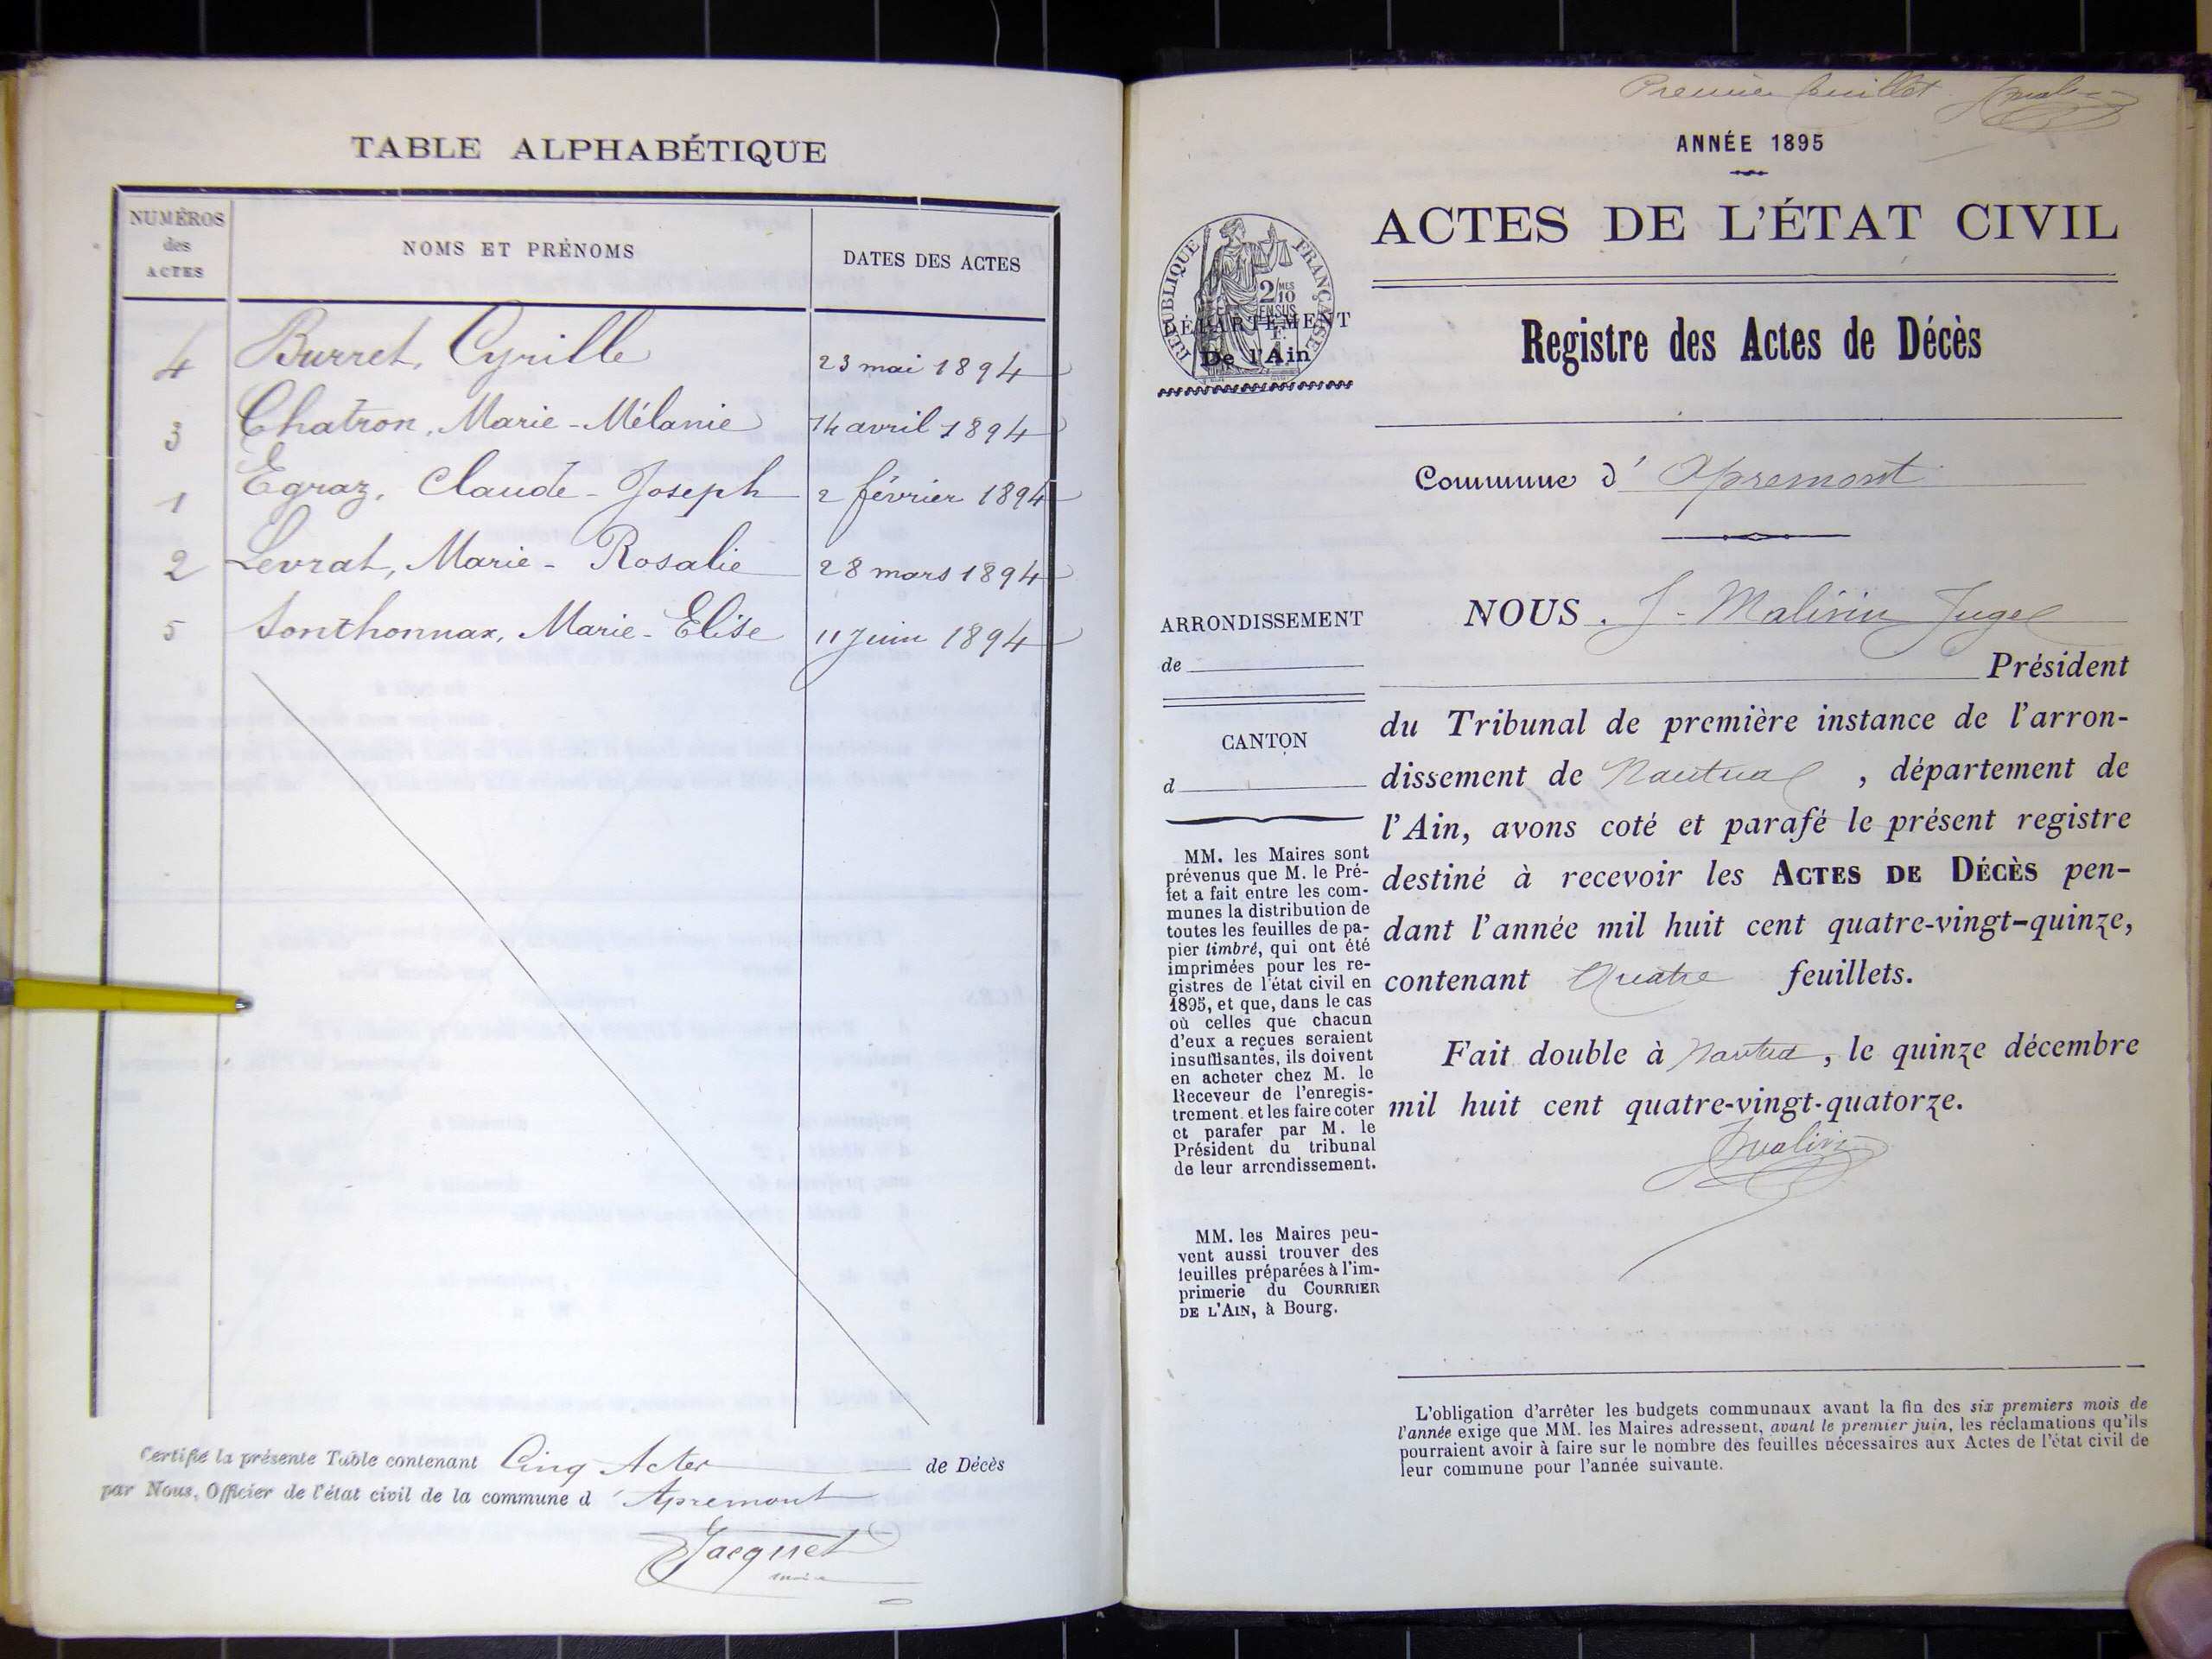 TABLE ALPHABÉTIQUE
NUMÉROS
des
ACTES
NOMS ET PRÉNOMS
DATES DES ACTES
4 Burret, Cyrille 23 mai 1894
3 Chatron, Marie-Mélanie 14 avril 1894
1 Egraz, Claude-Joseph 2 février 1894
2 Levrat, Marie-Rosalie 28 mars 1894
5 Sonthonnax, Marie-Elise 11 juin 1894
Certifié la présente Table contenant Cinq Actes de Décès
par Nous, Officier de l'état civil de la commune d'Apremont
Jacquet
Premier feuillet
ANNÉE 1895
ACTES DE L'ÉTAT CIVIL
RÉPUBLIQUE FRANÇAISE
2/10MES
EN SUS
DÉPARTEMENT
De l'Ain
Registre des Actes de Décès
Commune d' Apremont
ARRONDISSEMENT
de
CANTON
d
MM. les Maires sont
prévenus que M. le Pré-
fet a fait entre les com-
munes la distribution de
toutes les feuilles de pa-
pier timbré, qui ont été
imprimées pour les re-
gistres de l'état civil en
1895, et que, dans le cas
où celles que chacun
d'eux a reçues seraient
insuffisantes, ils doivent
en acheter chez M. le
Receveur de l'enregis-
trement et les faire coter
et parafer par M. le
Président du tribunal
de leur arrondissement.
MM. les Maires peu-
vent aussi trouver des
feuilles préparées à l'im-
primerie du COURRIER
DE L'AIN, à Bourg.
NOUS. J. Malivin Juge
Président
du Tribunal de première instance de l'arron-
dissement de Nantua, département de
l'Ain, avons coté et parafé le présent registre
destiné à recevoir les ACTES DE DÉCÈS pen-
dant l'année mil huit cent quatre-vingt-quinze,
contenant Quatre feuillets.
Fait double à Nantua, le quinze décembre
mil huit cent quatre-vingt-quatorze.
L'obligation d'arrêter les budgets communaux avant la fin des six premiers mois de
l'année exige que MM. les Maires adressent, avant le premier juin, les réclamations qu'ils
pourraient avoir à faire sur le nombre des feuilles nécessaires aux Actes de l'état civil de
leur commune pour l'année suivante.